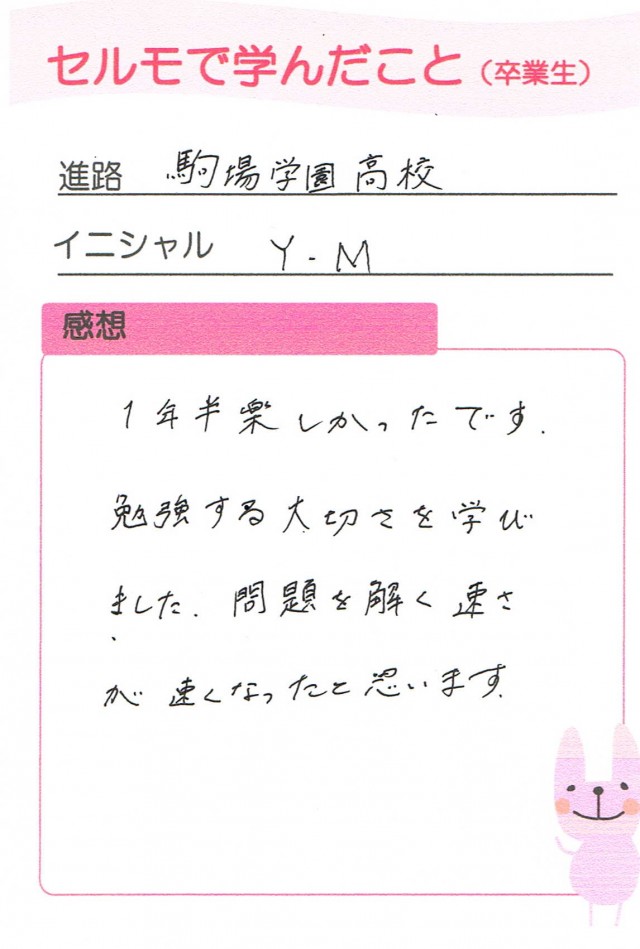 セルモで学んだこと（卒業生）
進路 駒場学園高校
イニシャル Y-M
感想
1年半楽しかったです.
勉強する大切さを学び
ました. 問題を解く速さ
が速くなったと思います.